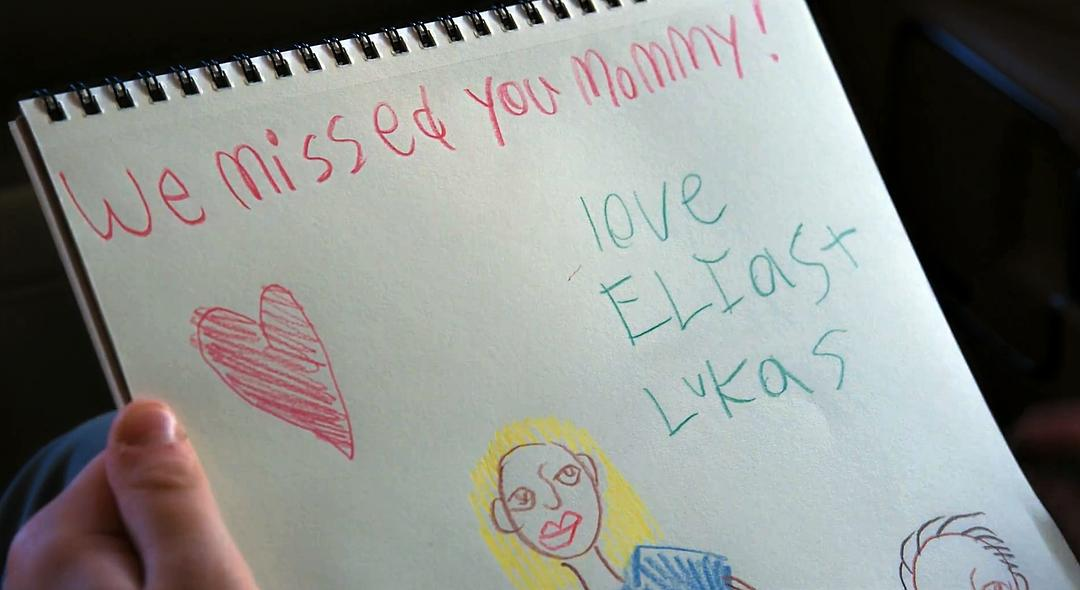 We missed you Mommy!
love
ELIas +
LuKas